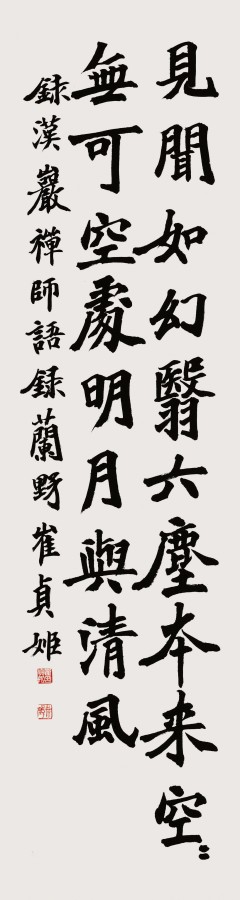 見聞如幻翳六塵本来空〻
無可空處明月與清風
録漢巖禪師語録蘭野崔貞姬